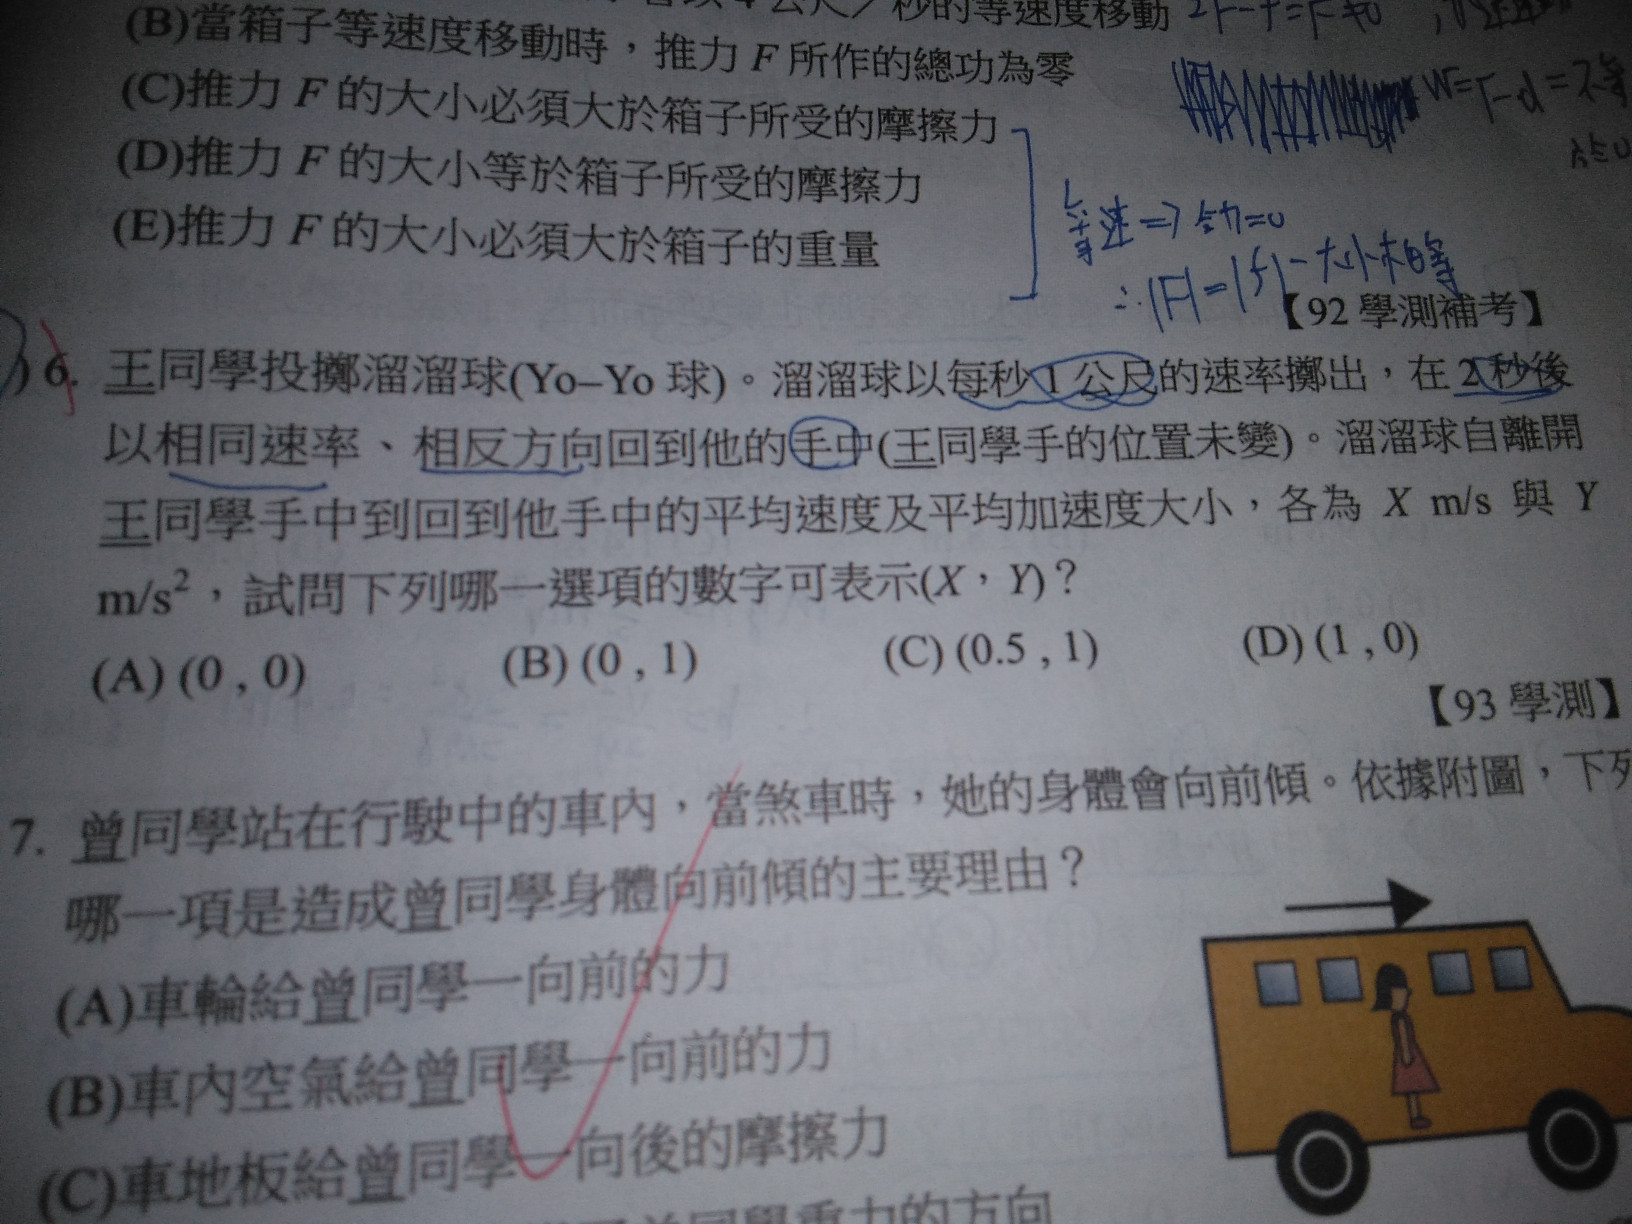 公尺／秒的等速度移動
(B)當箱子等速度移動時，推力 F 所作的總功為零
(C)推力 F 的大小必須大於箱子所受的摩擦力
(D)推力 F 的大小等於箱子所受的摩擦力
(E)推力 F 的大小必須大於箱子的重量
等速⇒合力=0
∴|F|=|f|－大小相等
【92 學測補考】
6. 王同學投擲溜溜球(Yo–Yo 球)。溜溜球以每秒 1 公尺的速率擲出，在 2 秒後
以相同速率、相反方向回到他的手中(王同學手的位置未變)。溜溜球自離開
王同學手中到回到他手中的平均速度及平均加速度大小，各為 X m/s 與 Y
m/s²，試問下列哪一選項的數字可表示(X，Y)？
(A) (0 , 0) (B) (0 , 1) (C) (0.5 , 1) (D) (1 , 0)
【93 學測】
7. 曾同學站在行駛中的車內，當煞車時，她的身體會向前傾。依據附圖，下列
哪一項是造成曾同學身體向前傾的主要理由？
(A)車輪給曾同學一向前的力
(B)車內空氣給曾同學一向前的力
(C)車地板給曾同學一向後的摩擦力
同學重力的方向